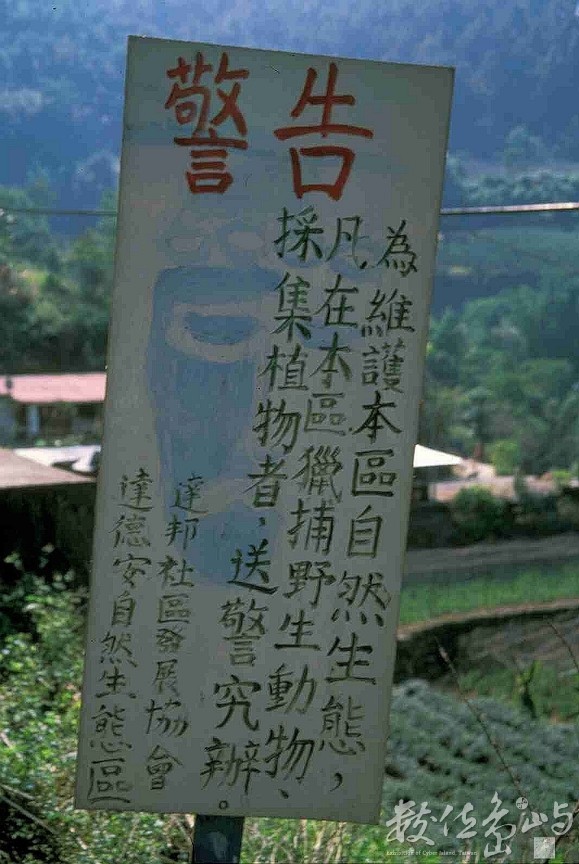 警告
為維護本區自然生態，
凡在本區獵捕野生動物、
採集植物者，送警究辦。
達邦社區發展協會
達德安自然生態區
數位島嶼